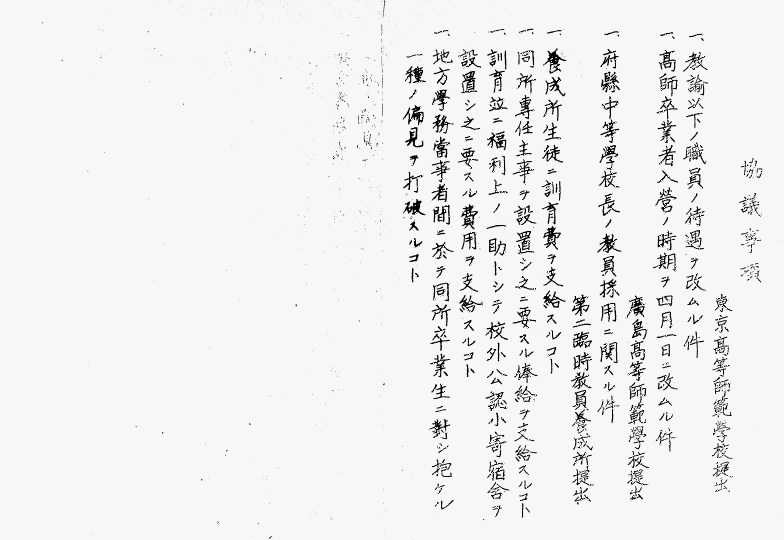 協議事項
東京高等師範學校提出
一、教諭以下ノ職員ノ待遇ヲ改ムル件
一、高師卒業者入營ノ時期ヲ四月一日ニ改ムル件
廣島高等師範學校提出
一、府縣中等學校長ノ教員採用ニ関スル件
第二臨時教員養成所提出
一、養成所生徒ニ訓育費ヲ支給スルコト
一、同所專任主事ヲ設置シ之ニ要スル俸給ヲ支給スルコト
一、訓育竝ニ福利上ノ一助トシテ校外公認小寄宿舎ヲ
設置シ之ニ要スル費用ヲ支給スルコト
一、地方學務當事者間ニ於テ同所卒業生ニ對シ抱ケル
一種ノ偏見ヲ打破スルコト